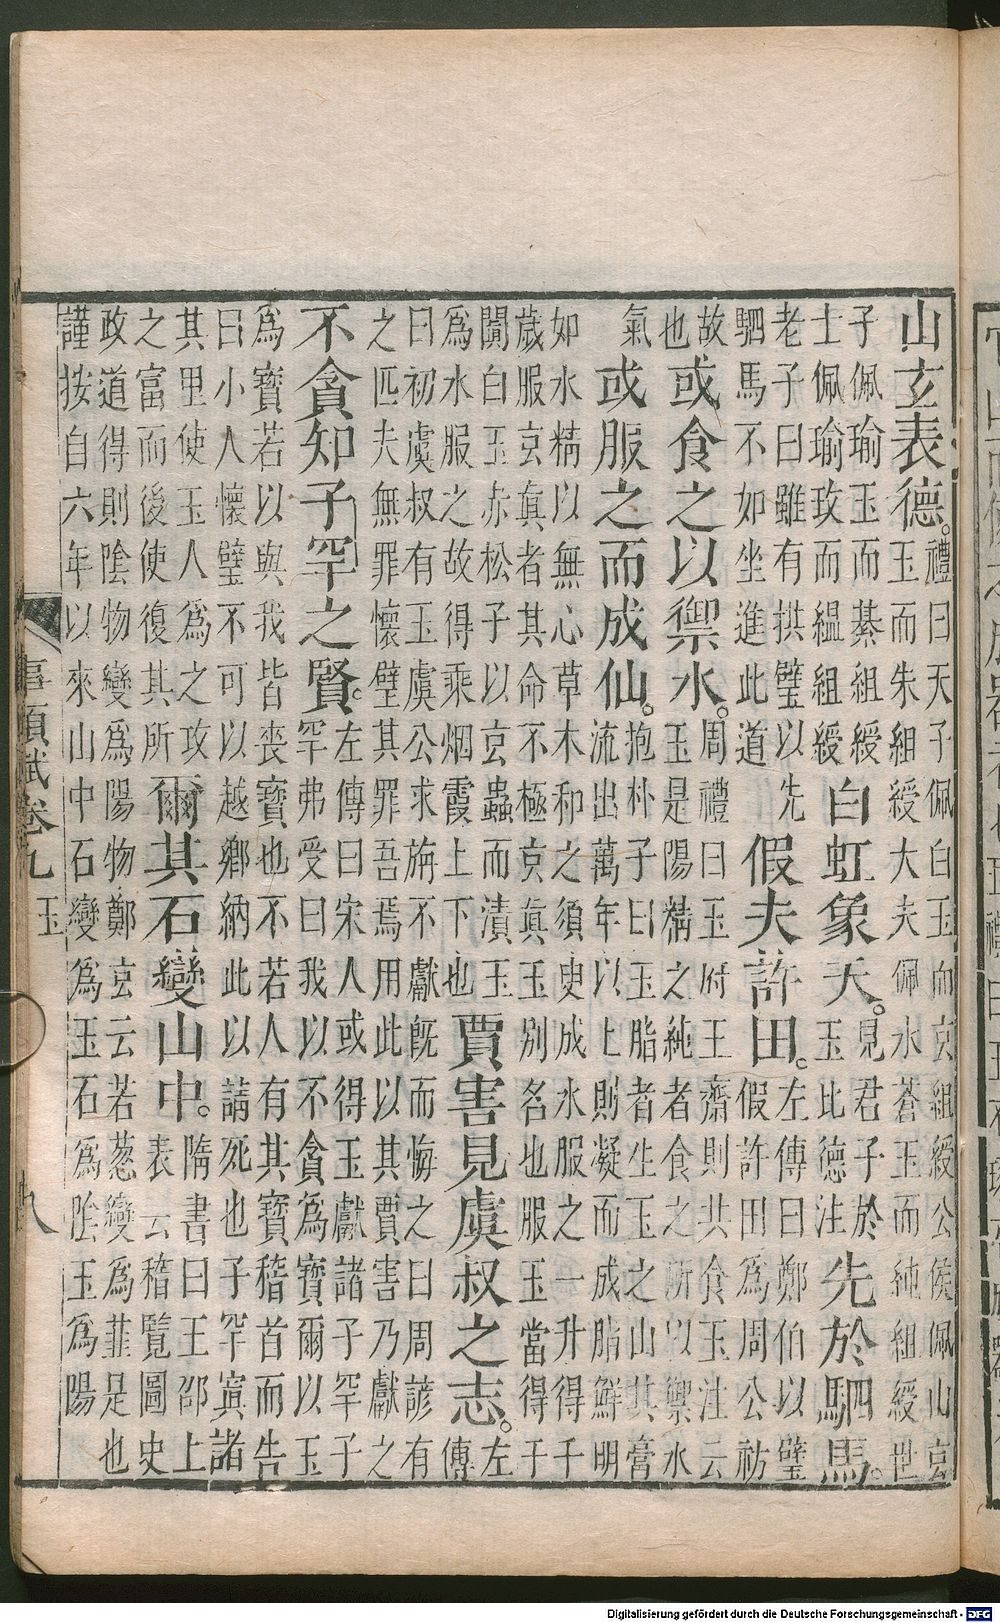 山玄表德。禮曰天子佩白玉而玄組綬公侯佩山玄
玉而朱組綬大夫佩水蒼玉而純組綬世
子佩瑜玉而綦組綬
士佩瑜玫而縕組綬白虹象天。見君子於
玉比德注先於駟馬。
老子曰雖有拱璧以先
駟馬不如坐進此道假夫許田。左傳曰鄭伯以璧
假許田為周公祊
故
也或食之以禦水。周禮曰玉府王齋則共食玉注云
玉是陽精之純者食之所以禦水
氣或服之而成仙。抱朴子曰玉脂者生玉之山其膏
流出萬年以上則凝而成脂鮮明
如水精以無心草木和之須臾成水服之一升得千
歲服玄真者其命不極玄真玉別名也服玉當得于
闐白玉赤松子以玄蟲而漬玉
為水服之故得乘烟霞上下也賈害見虞叔之志。左
傳
曰初虞叔有玉虞公求旃不獻既而悔之曰周諺有
之匹夫無罪懷璧其罪吾焉用此以其賈害乃獻之
不貪知子罕之賢。左傳曰宋人或得玉獻諸子罕子
罕弗受曰我以不貪為寶爾以玉
為寶若以與我皆喪寶也不若人有其寶稽首而告
曰小人懷璧不可以越鄉納此以請死也子罕寘諸
其里使玉人為之攻
之富而後使復其所爾其石變山中。隋書曰王邵上
表云稽覽圖史
政道得則陰物變為陽物鄭玄云若葱變為韭是也
謹按自六年以來山中石變為玉石為陰玉為陽
事類賦卷九 玉 八
Digitalisierung gefördert durch die Deutsche Forschungsgemeinschaft - DFG